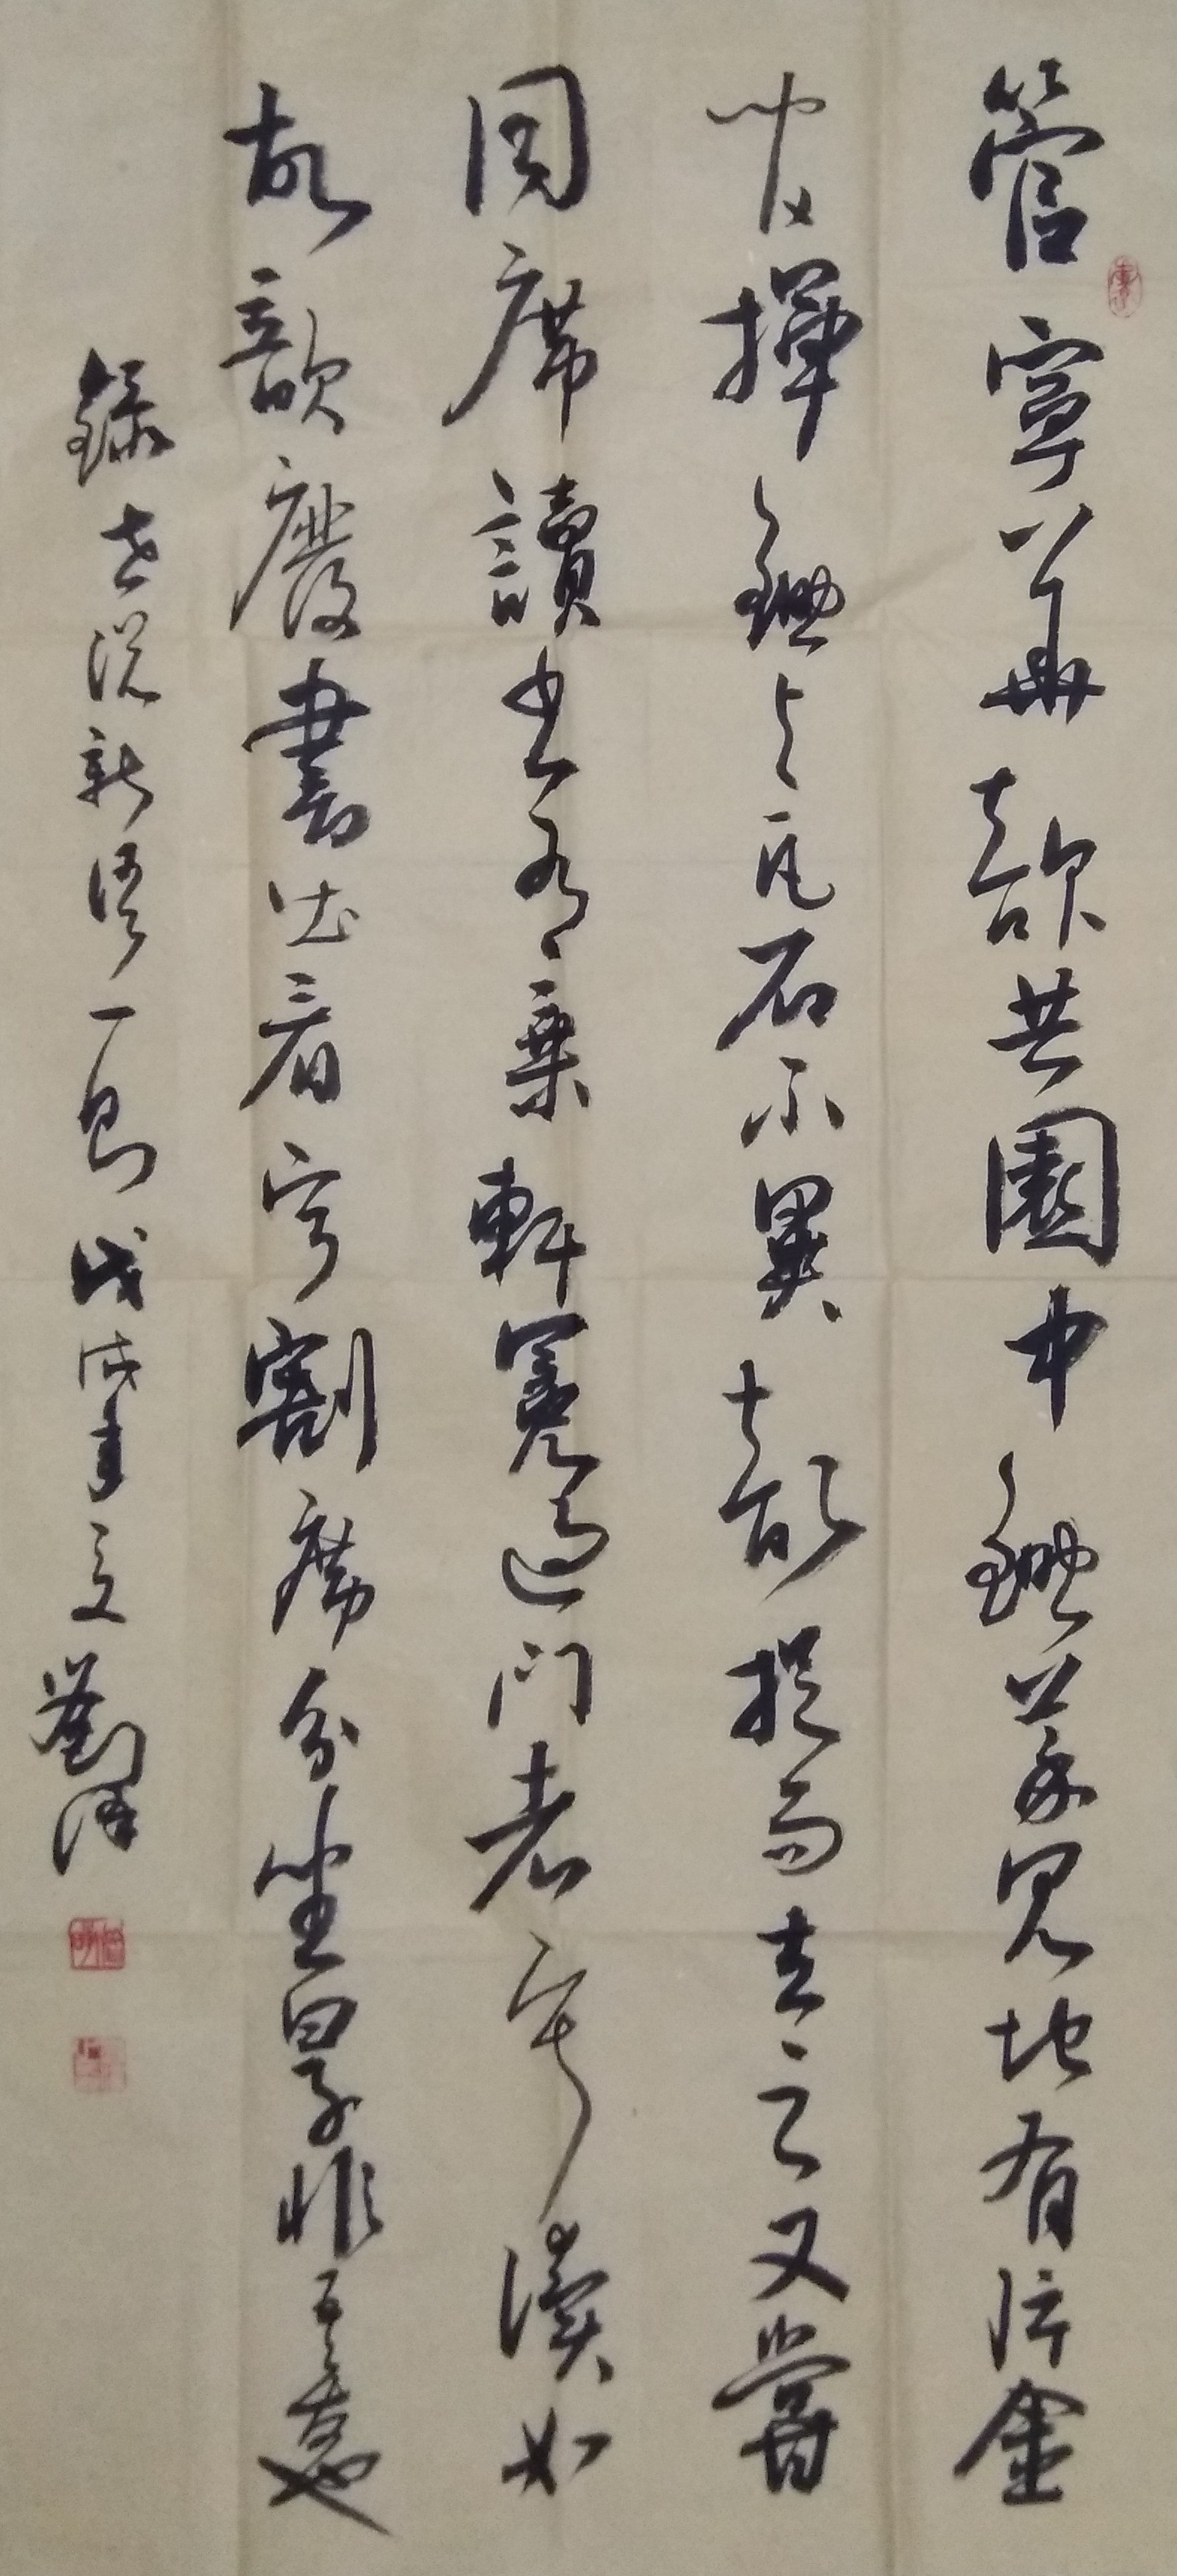 管寧華歆共園中鋤菜見地有片金
管揮鋤與瓦石不異歆捉而去之又嘗
同席讀書有乘軒冕過門者寧讀如
故歆廢書出看寧割席分坐曰子非吾友也
錄世說新語一則戊戌年夏劉